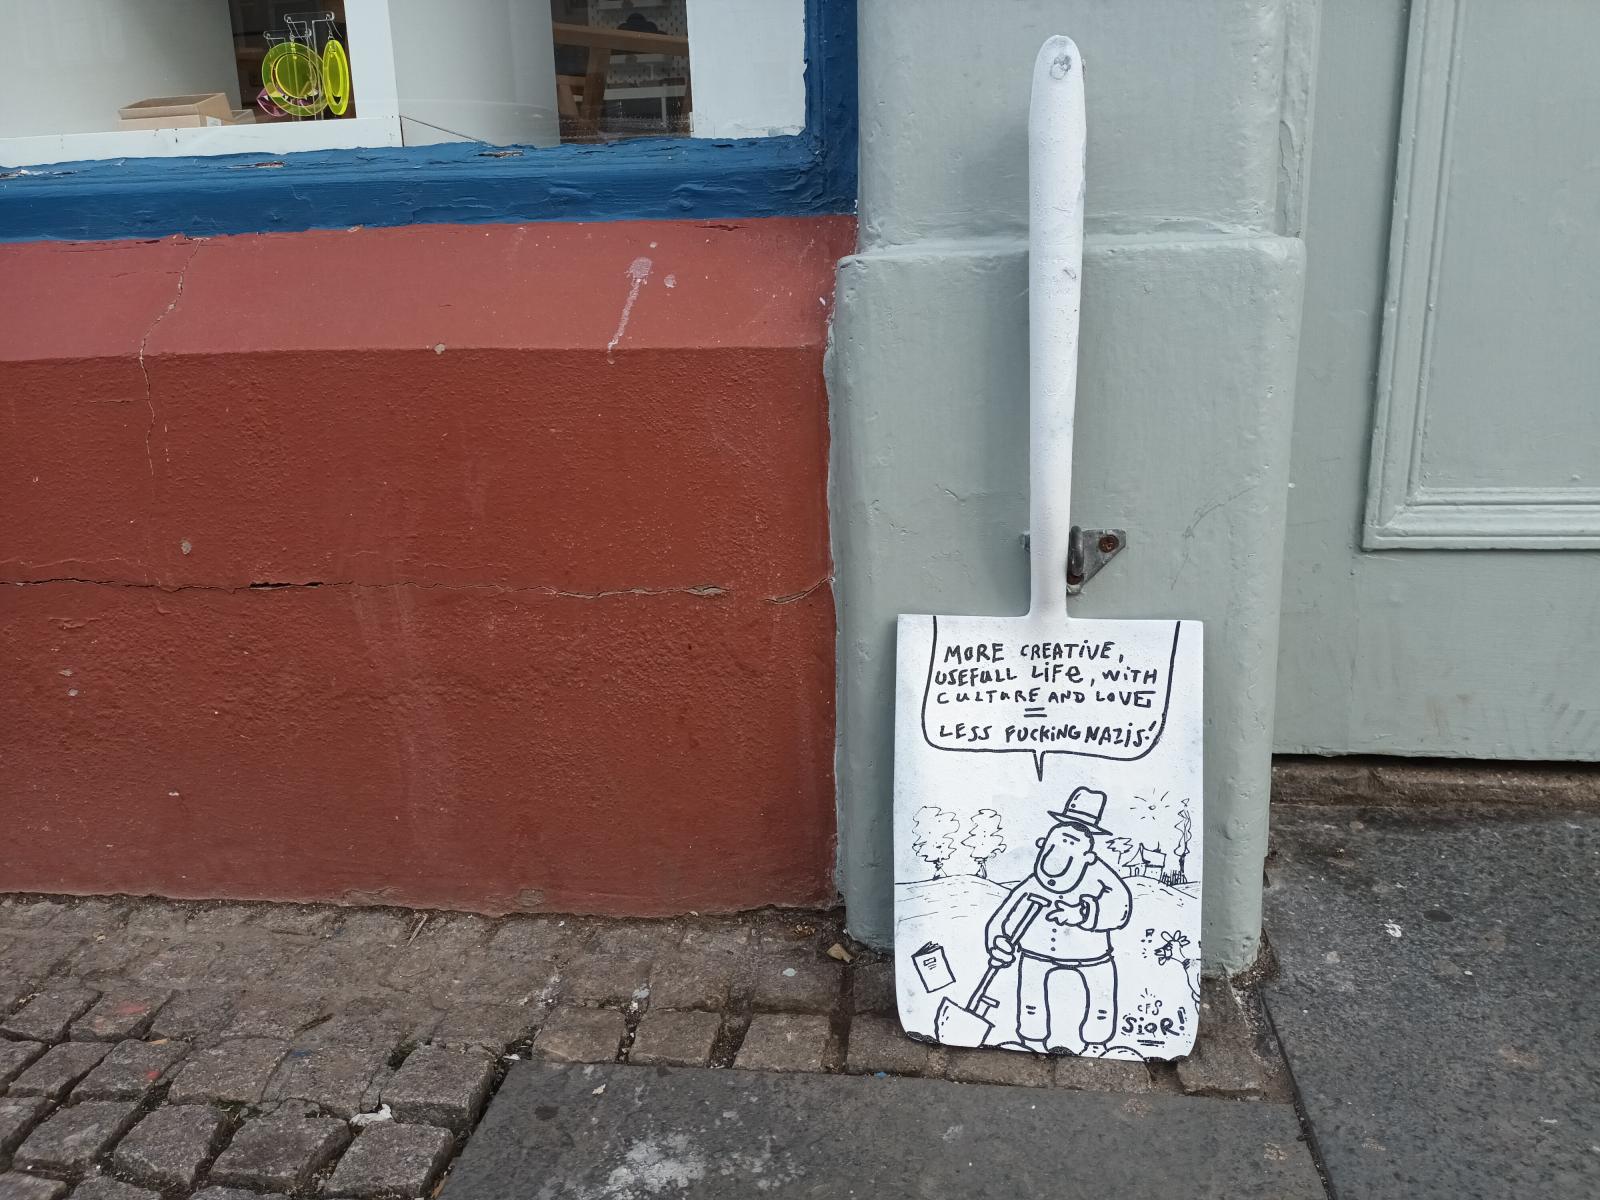 MORE CREATIVE,
USEFULL LIFE, WITH
CULTURE AND LOVE
=
LESS FUCKING NAZIS!
CFS
SiQR!